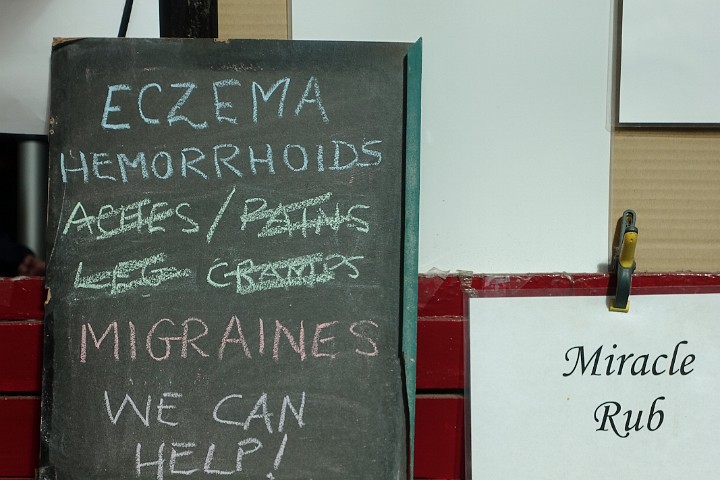 ECZEMA
HEMORRHOIDS
ACHES/PAINS
LEG CRAMPS
MIGRAINES
WE CAN
HELP!
Miracle
Rub